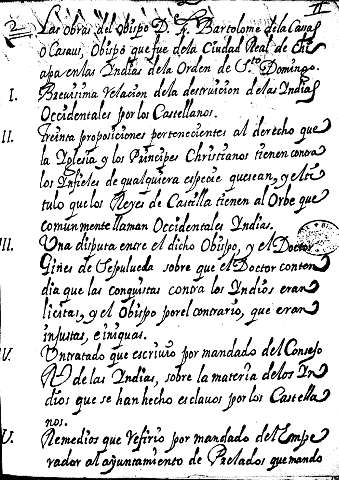 II
2
Las obras del obispo D. f. Bartolome de la Casas
ò Casaus, Obispo que fue de la Ciudad Real de Chi
apa en las Indias de la Orden de S.to Domingo.
I. Brevissima relacion de la destruicion de las Indias
Occidentales por los Castellanos.
II. Treinta proposiciones pertenecientes al derecho que
la Iglesia y los Principes Christianos tienen contra
los Infieles de qualquiera especie que sean, y el ti
tulo que los Reyes de Castilla tienen al Orbe que
comunmente llaman Occidentales Indias.
III. Una disputa entre el dicho Obispo, y el Doctor
Gines de Sepulveda sobre que el Doctor conten
dia que las conquistas contra los Indios eran
licitas, y el Obispo por el contrario, que eran
injustas, e iniquas.
IV. Un tratado que escrivio por mandado del Consejo
R.l de las Indias, sobre la materia de los In
dios que se han hecho esclavos por los Castella
nos.
V. Remedios que refirio por mandado del Empe
rador al ayuntamiento de Prelados que mando